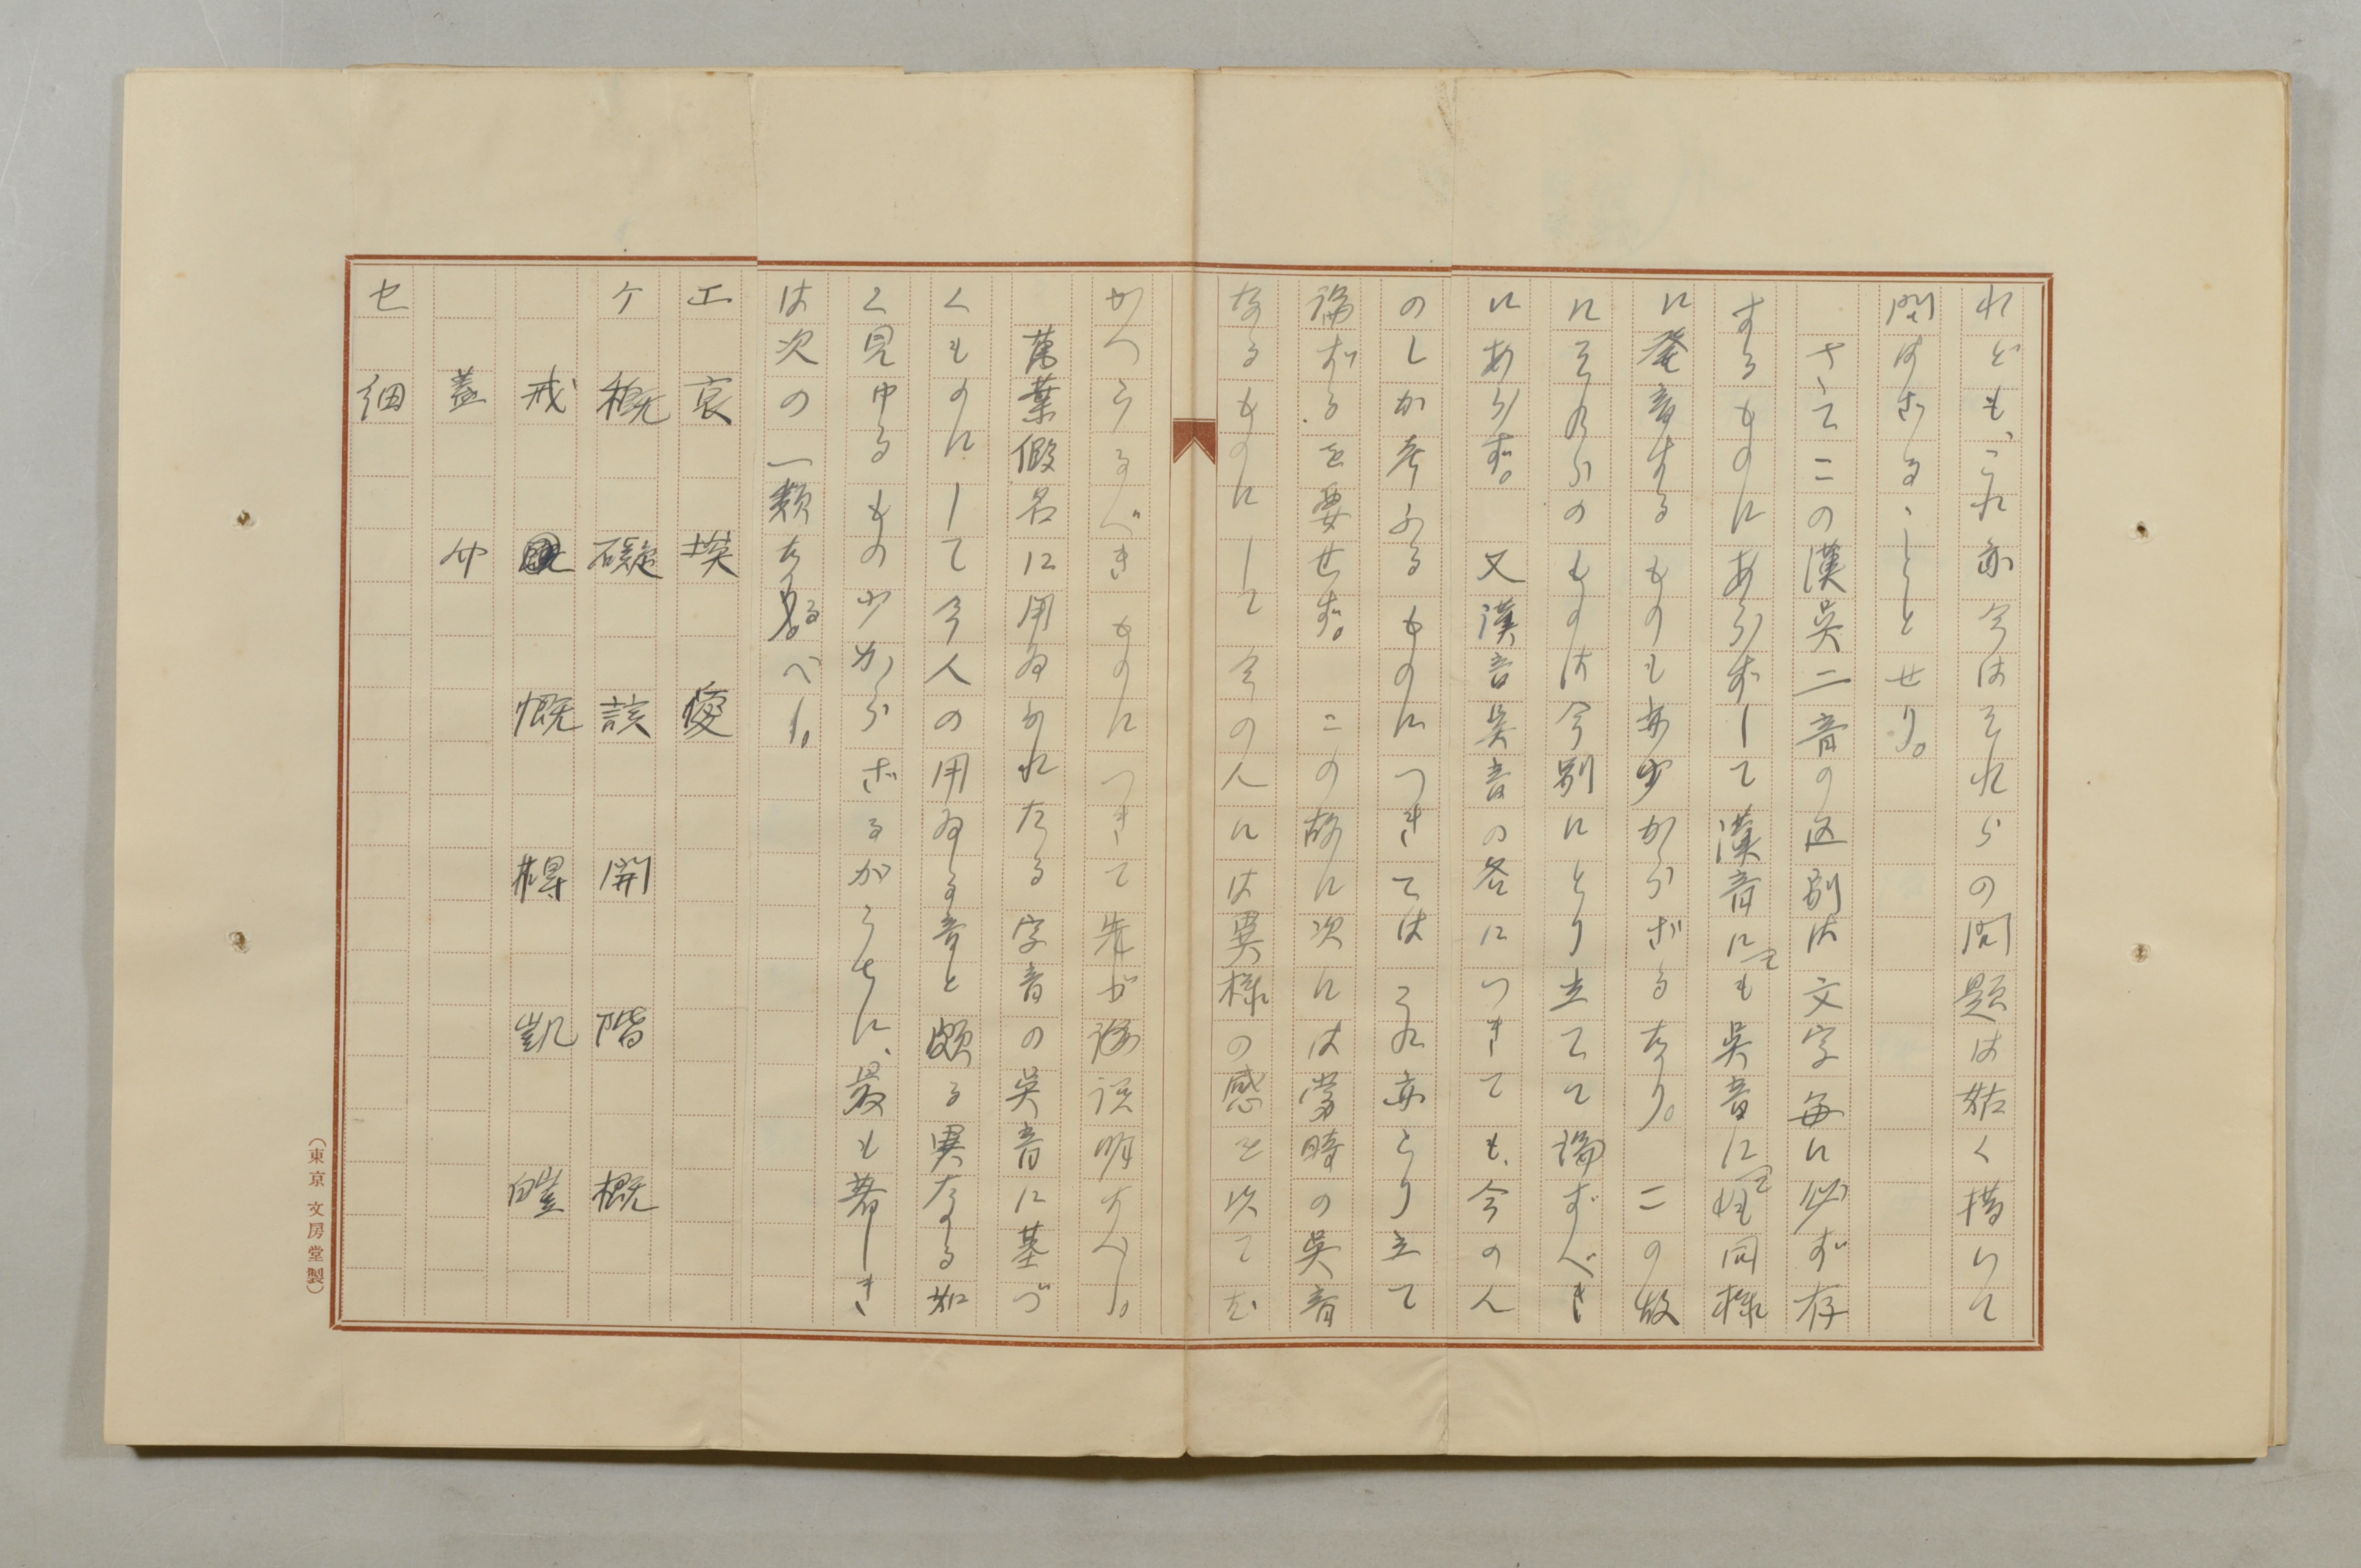 れども、これ亦今はそれらの問題は姑く措いて
問はざることとせり。
さてこの漢呉二音の区別は文字毎に必ず存
するものにあらずして漢音にても呉音にても同様
に発音するものも亦少からざるなり。この故
にそれらのものは今別にとり立てて論ずべき
にあらず。又漢音呉音の各につきても、今の人
のしか考ふるものにつきてはこれ亦とり立て
論ずるを要せず。この故に次には当時の呉音
なるものにして今の人には異様の感を以てむ
かへらるべきものにつきて先が説明すべし。
萬葉假名に用ゐられたる字音の呉音に基づ
くものにして今人の用ゐる音と頗る異なる如
く見ゆるもの少からざるがうちに、最も著しき
は次の一類なるべし。
エ 哀 埃 愛
ケ 穊 礙 該 開 階 概
戒 慨 凱 皚
蓋
セ 細
(東京 文房堂製)